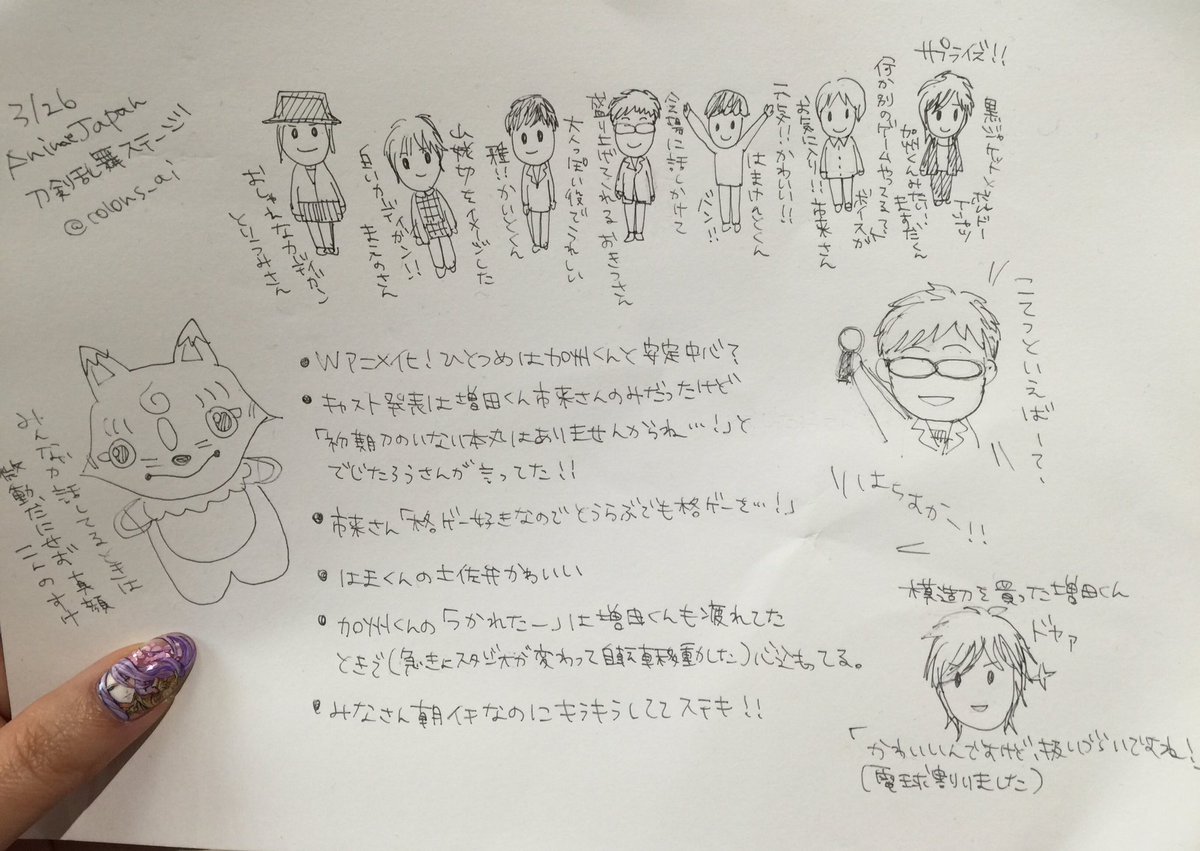 3/26
AnimeJapan
刀剣乱舞ステージ
@colons_ai
サプライズ!!
黒ジャケットとボルドー
Tシャツ
加州くんみたい…!
ますだくん
何か別のゲームやってる
ボイスが
お気に入り!!! 市来さん
元気!! かわいい!!
はまけんとくん
バン!!
会場に話しかけて
盛り上げてくれる おきつさん
大人っぽい役でうれしい
雅!! かいとくん
山姥切をイメージした
白いカーディガン!!
まえのさん
おしゃれなカーディガン
とりうみさん
●Wアニメ化!ひとつめは加州くんと安定中心?
●キャスト発表は増田くん市来さんのみだったけど
「初期刀のいない本丸はありませんからね…!」と
でじたろうさんが言ってた!!
●市来さん「格ゲー好きなのでとうらぶでも格ゲーを…!」
●はまくんの土佐弁かわいい
●加州くんの「つかれたー」は増田くんも疲れてた
ときで(急きょスタジオが変わって自転車移動した)心込もってる。
●みなさん朝イチなのにキラキラしててステキ!!
みんなが話してるときは
微動だにせず真顔
こんのすけ
こてつといえばー?
はちすかー!!
模造刀を買った増田くん
ドヤァ
「かわいいんですけど、扱いづらいですよね!
(電球割りました)